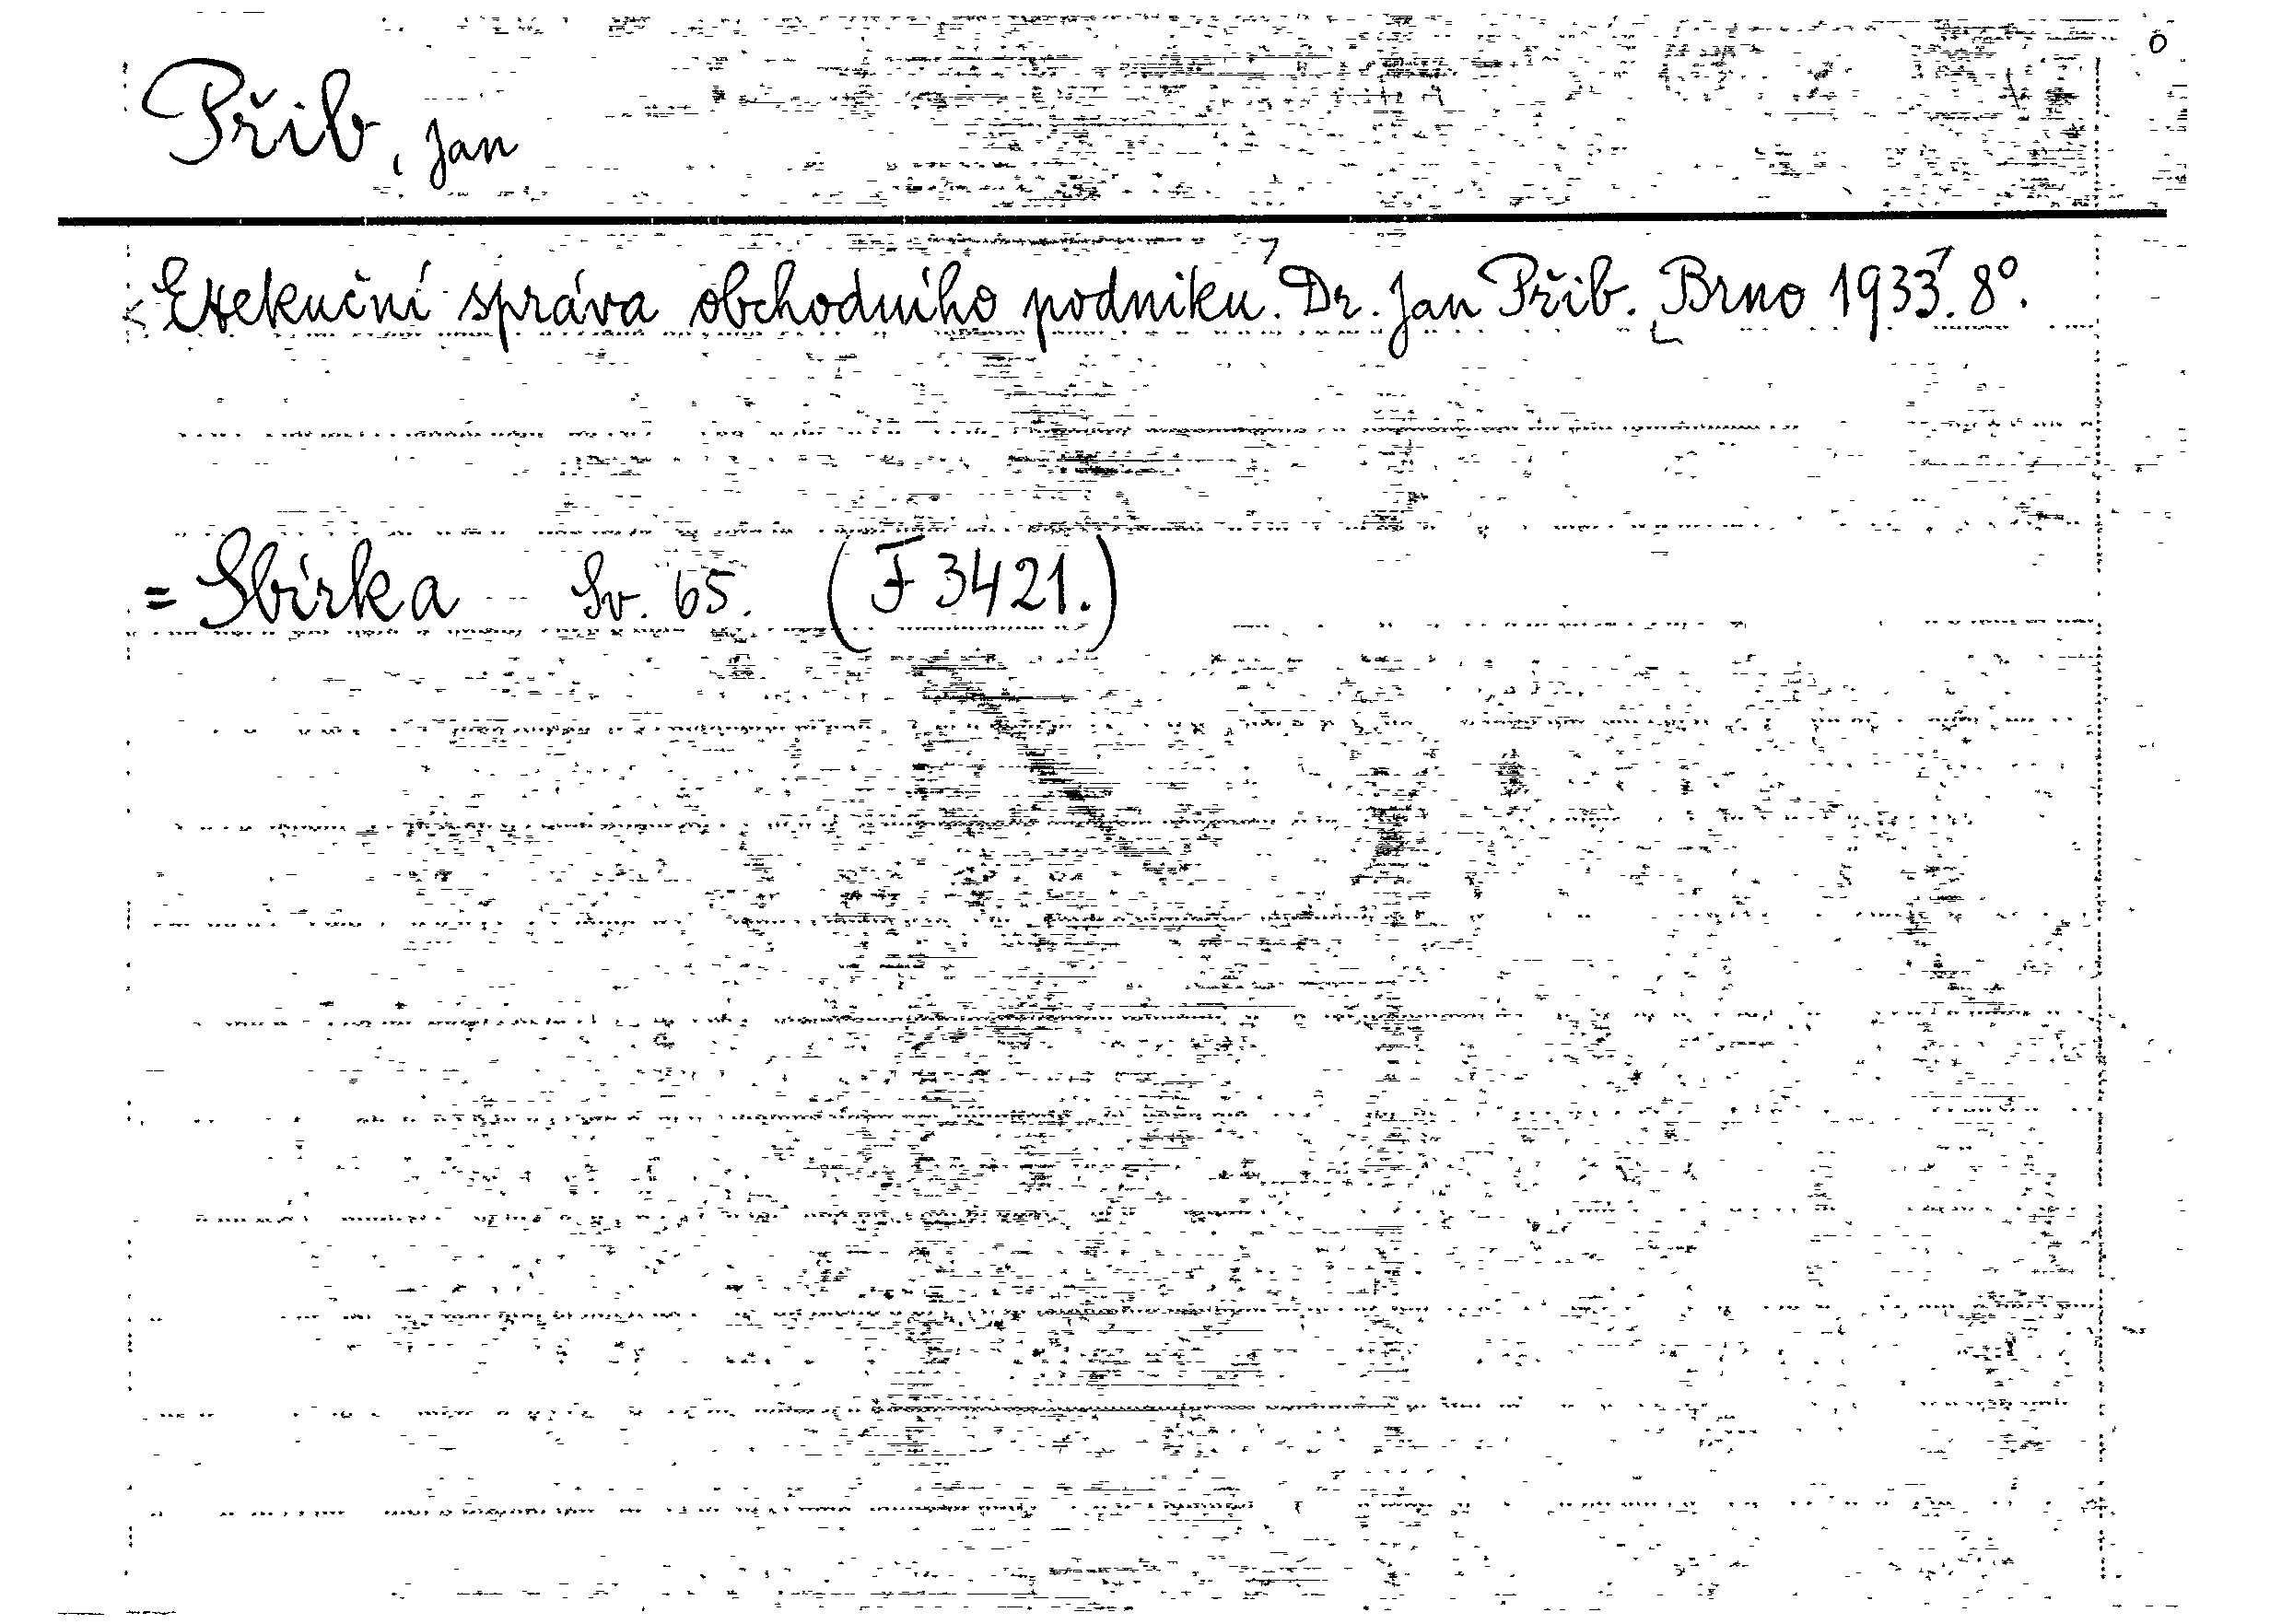 Přib, Jan
Exekuční správa obchodního podniku. Dr. Jan Přib. Brno 1933. 8°.
= Sbírka Sv. 65. (F 3421.)